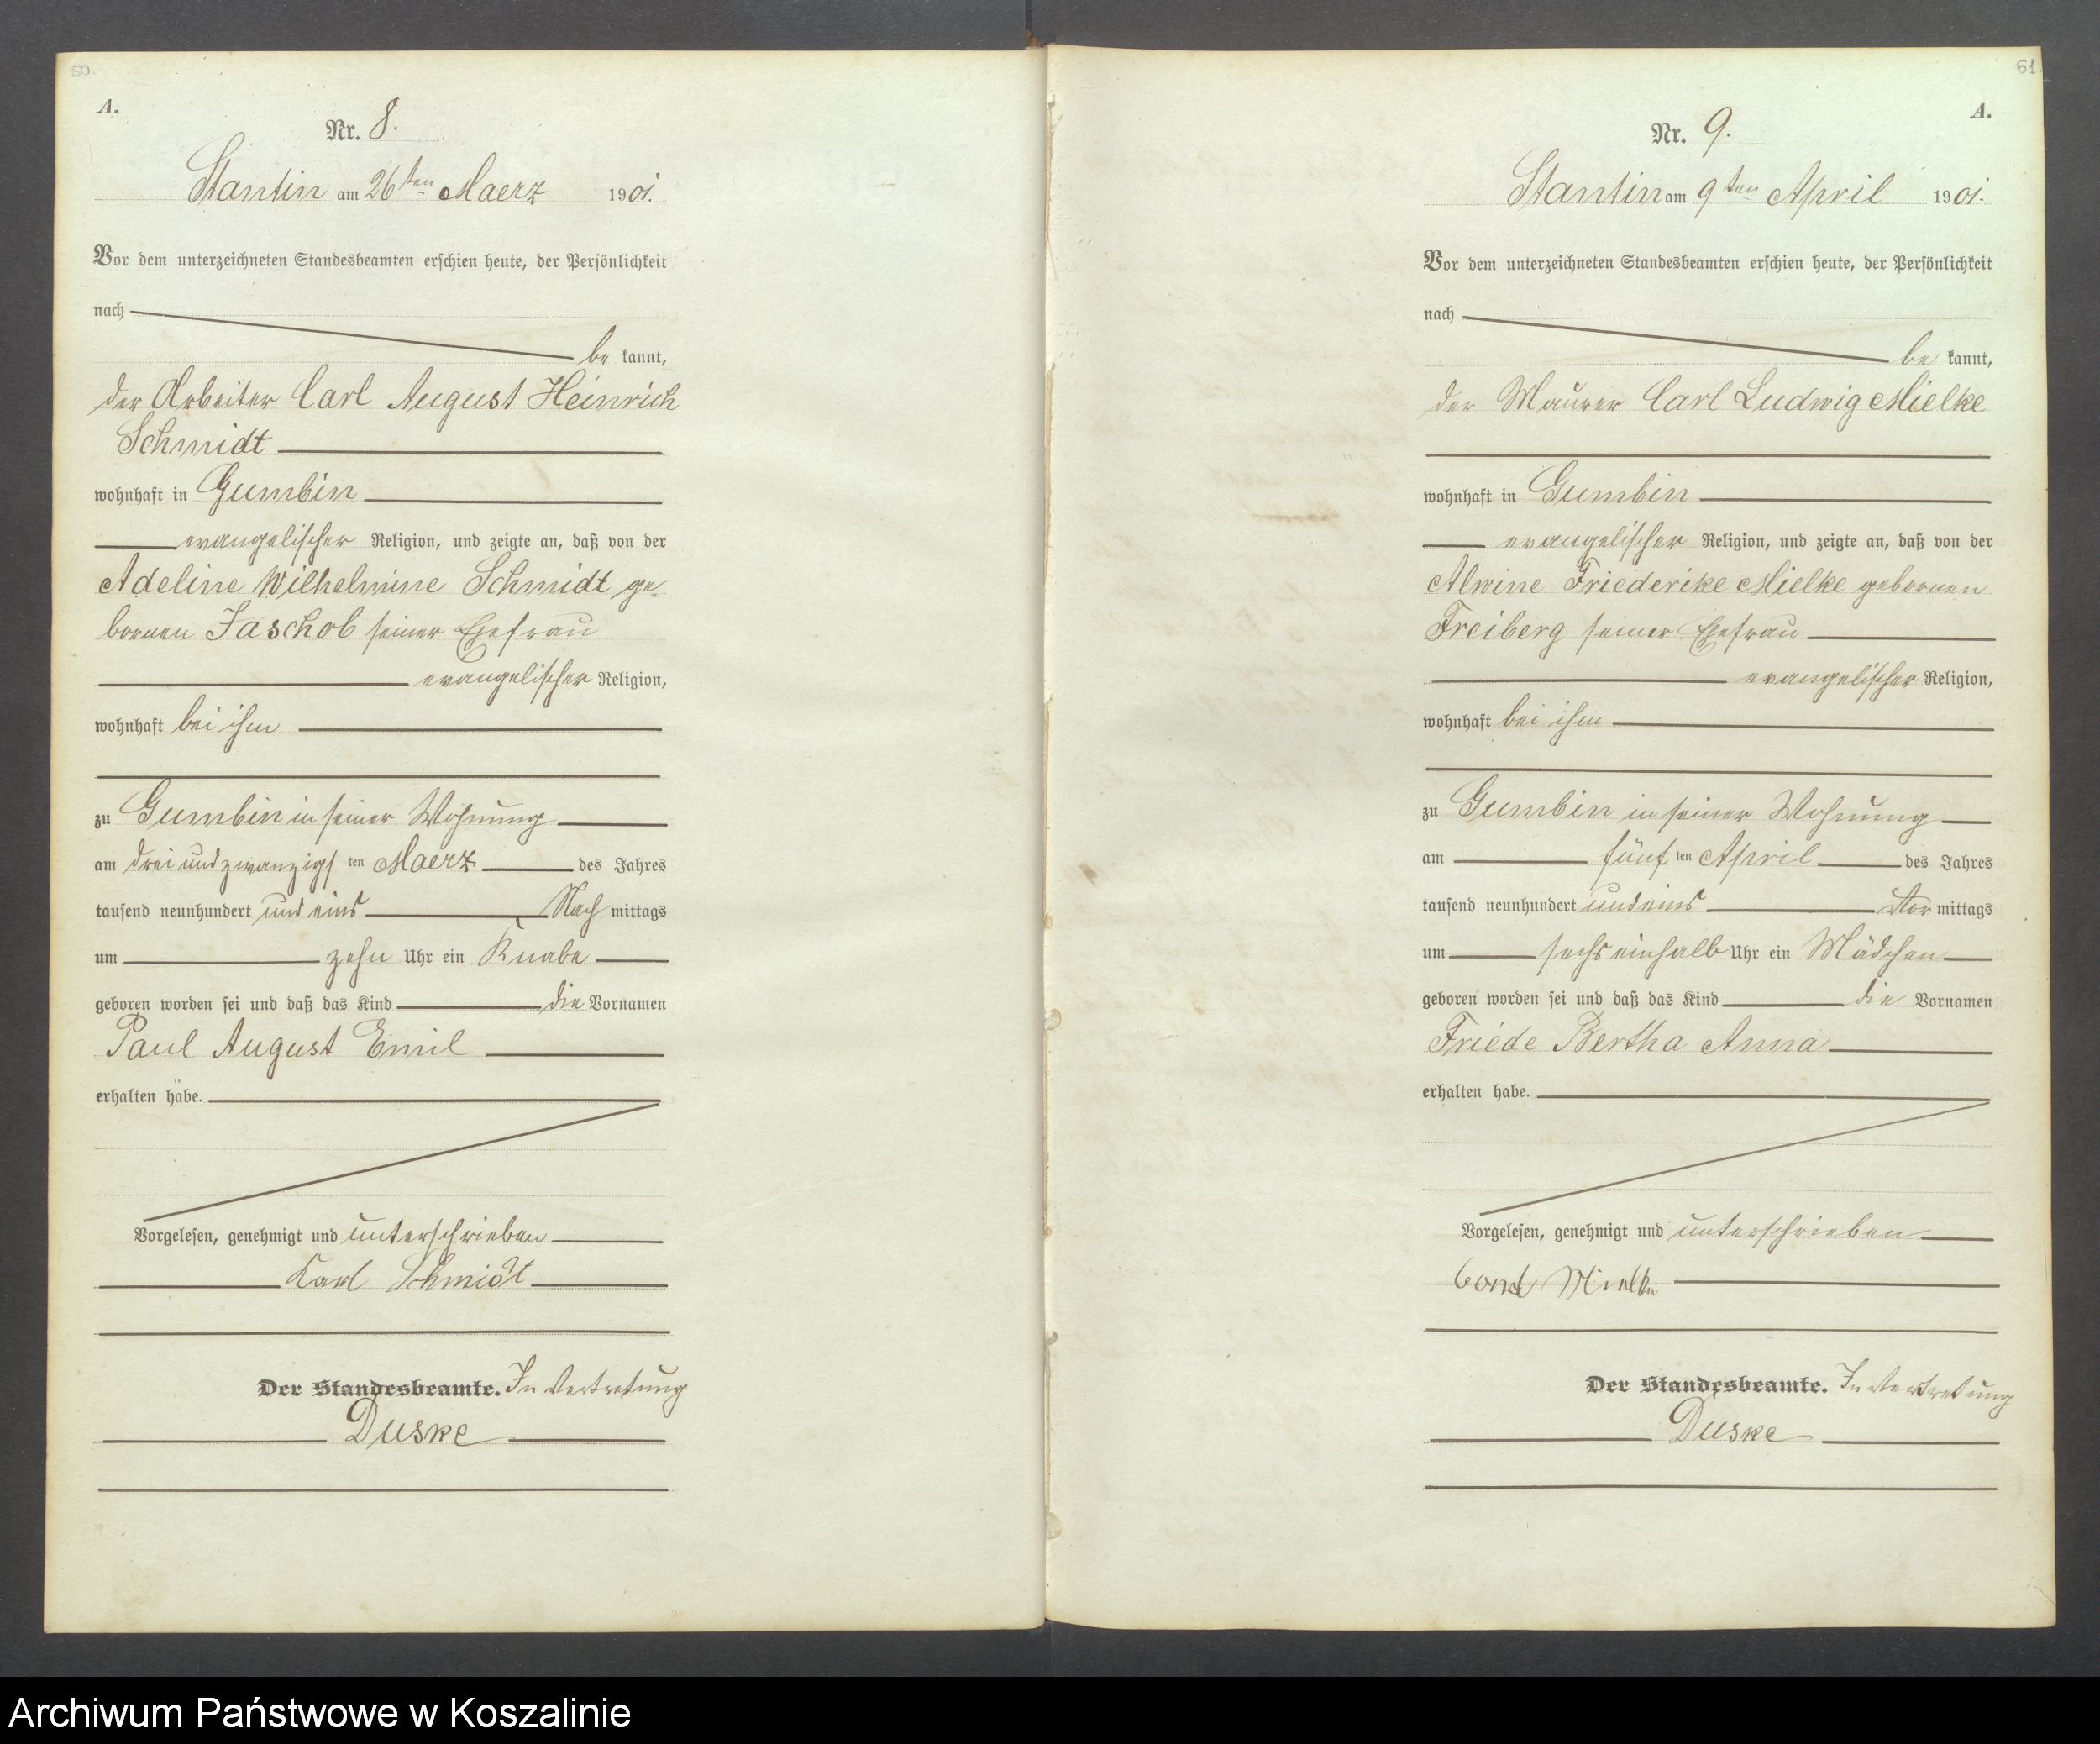 50.
A.
Nr. 8.
Stantin am 26ten Maerz 1901.
Vor dem unterzeichneten Standesbeamten erschien heute, der Persönlichkeit
nach
be kannt,
der Arbeiter Carl August Heinrich
Schmidt
wohnhaft in Gumbin
evangelischer Religion, und zeigte an, daß von der
Adeline Wilhelmine Schmidt ge-
bornen Jaschob seiner Ehefrau
evangelischer Religion,
wohnhaft bei ihm
zu Gumbin in seiner Wohnung
am drei und zwanzigs ten Maerz des Jahres
tausend neunhundert und eins Nach mittags
um zehn Uhr ein Knabe
geboren worden sei und daß das Kind die Vornamen
Paul August Emil
erhalten habe.
Vorgelesen, genehmigt und unterschrieben
Karl Schmidt
Der Standesbeamte. In Vertretung
Duske
61.
A.
Nr. 9.
Stantin am 9ten April 1901.
Vor dem unterzeichneten Standesbeamten erschien heute, der Persönlichkeit
nach
be kannt,
der Maurer Carl Ludwig Mielke
wohnhaft in Gumbin
evangelischer Religion, und zeigte an, daß von der
Alwine Friederike Mielke gebornen
Freiberg seiner Ehefrau
evangelischer Religion,
wohnhaft bei ihm
zu Gumbin in seiner Wohnung
am fünf ten April des Jahres
tausend neunhundert und eins Vor mittags
um sechs einhalb Uhr ein Mädchen
geboren worden sei und daß das Kind die Vornamen
Friede Bertha Anna
erhalten habe.
Vorgelesen, genehmigt und unterschrieben
Carl Mielke
Der Standesbeamte. In Vertretung
Duske
Archiwum Państwowe w Koszalinie